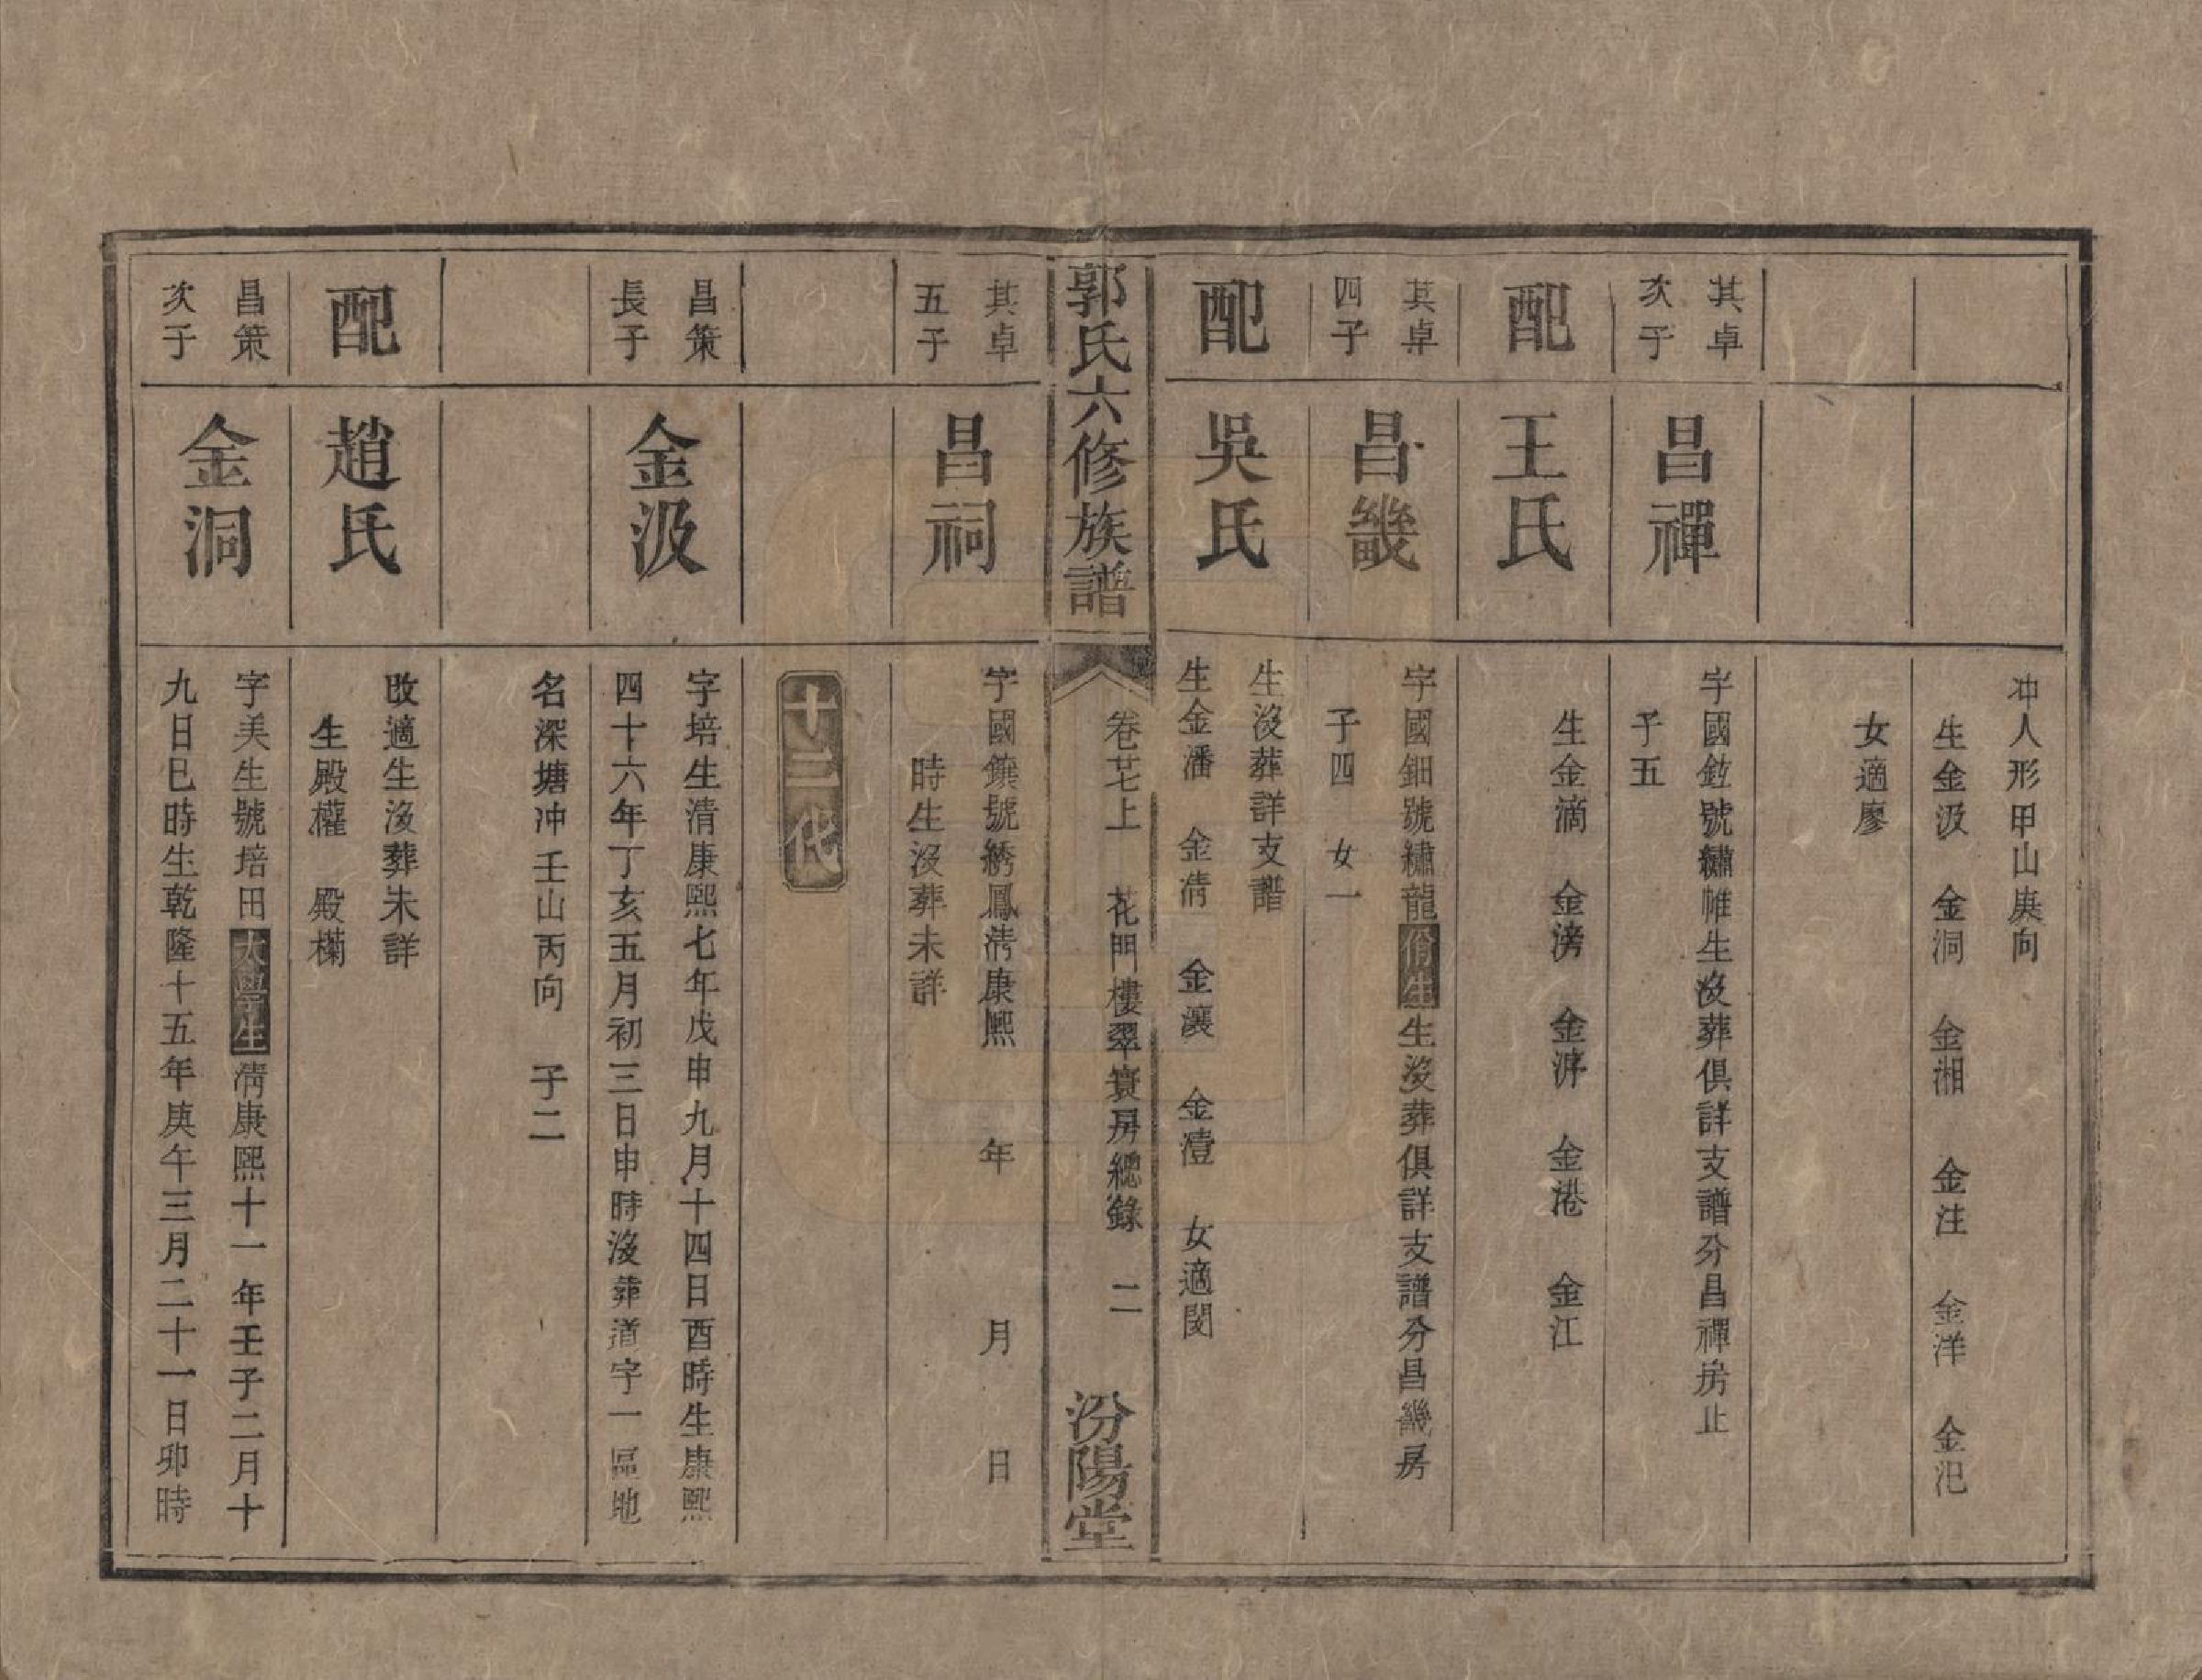 冲人形甲山庚向
生金汲　金洞　金湘　金注　金洋　金汜
女適廖
其卓
次子
昌禪
字國鉝號繡帷生沒葬俱詳支譜分昌禪房止
子五
配
王氏
生金滴　金滂　金湃　金港　金江
其卓
四子
昌畿
字國鈿號繡龍佾生生沒葬俱詳支譜分昌畿房
子四　女一
配
吳氏
生沒葬詳支譜
生金潘　金淸　金瀼　金澧　女適閔
郭氏六修族譜
卷廿七上　花門樓翠賓房總錄　二
汾陽堂
其卓
五子
昌祠
字國鐼號綉鳳淸康熙　年　月　日
時生沒葬未詳
十三代
昌策
長子
金汲
字培生清康熙七年戊申九月十四日酉時生康熙
四十六年丁亥五月初三日申時沒葬道字一區地
名深塘冲壬山丙向　子二
配
趙氏
改適生沒葬未詳
生殿權　殿㰖
昌策
次子
金洞
字美生號培田太學生淸康熙十一年壬子二月十
九日巳時生乾隆十五年庚午三月二十一日卯時